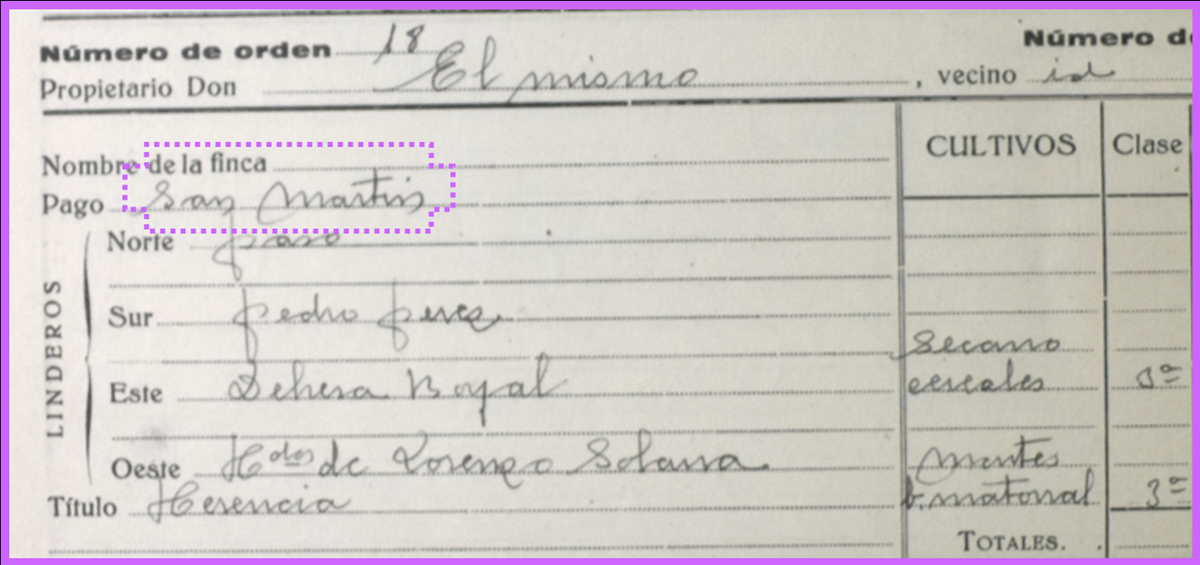 Número de orden 18 Número de
Propietario Don El mismo, vecino id
CULTIVOS Clase
Nombre de la finca
Pago San Martin
LINDEROS
Norte paso
Sur Pedro Perez
Secano
Este Dehesa Boyal cereales 3ª
Oeste Hdos de Lorenzo Solana Montes
Título Herencia b. matorral 3ª
TOTALES.